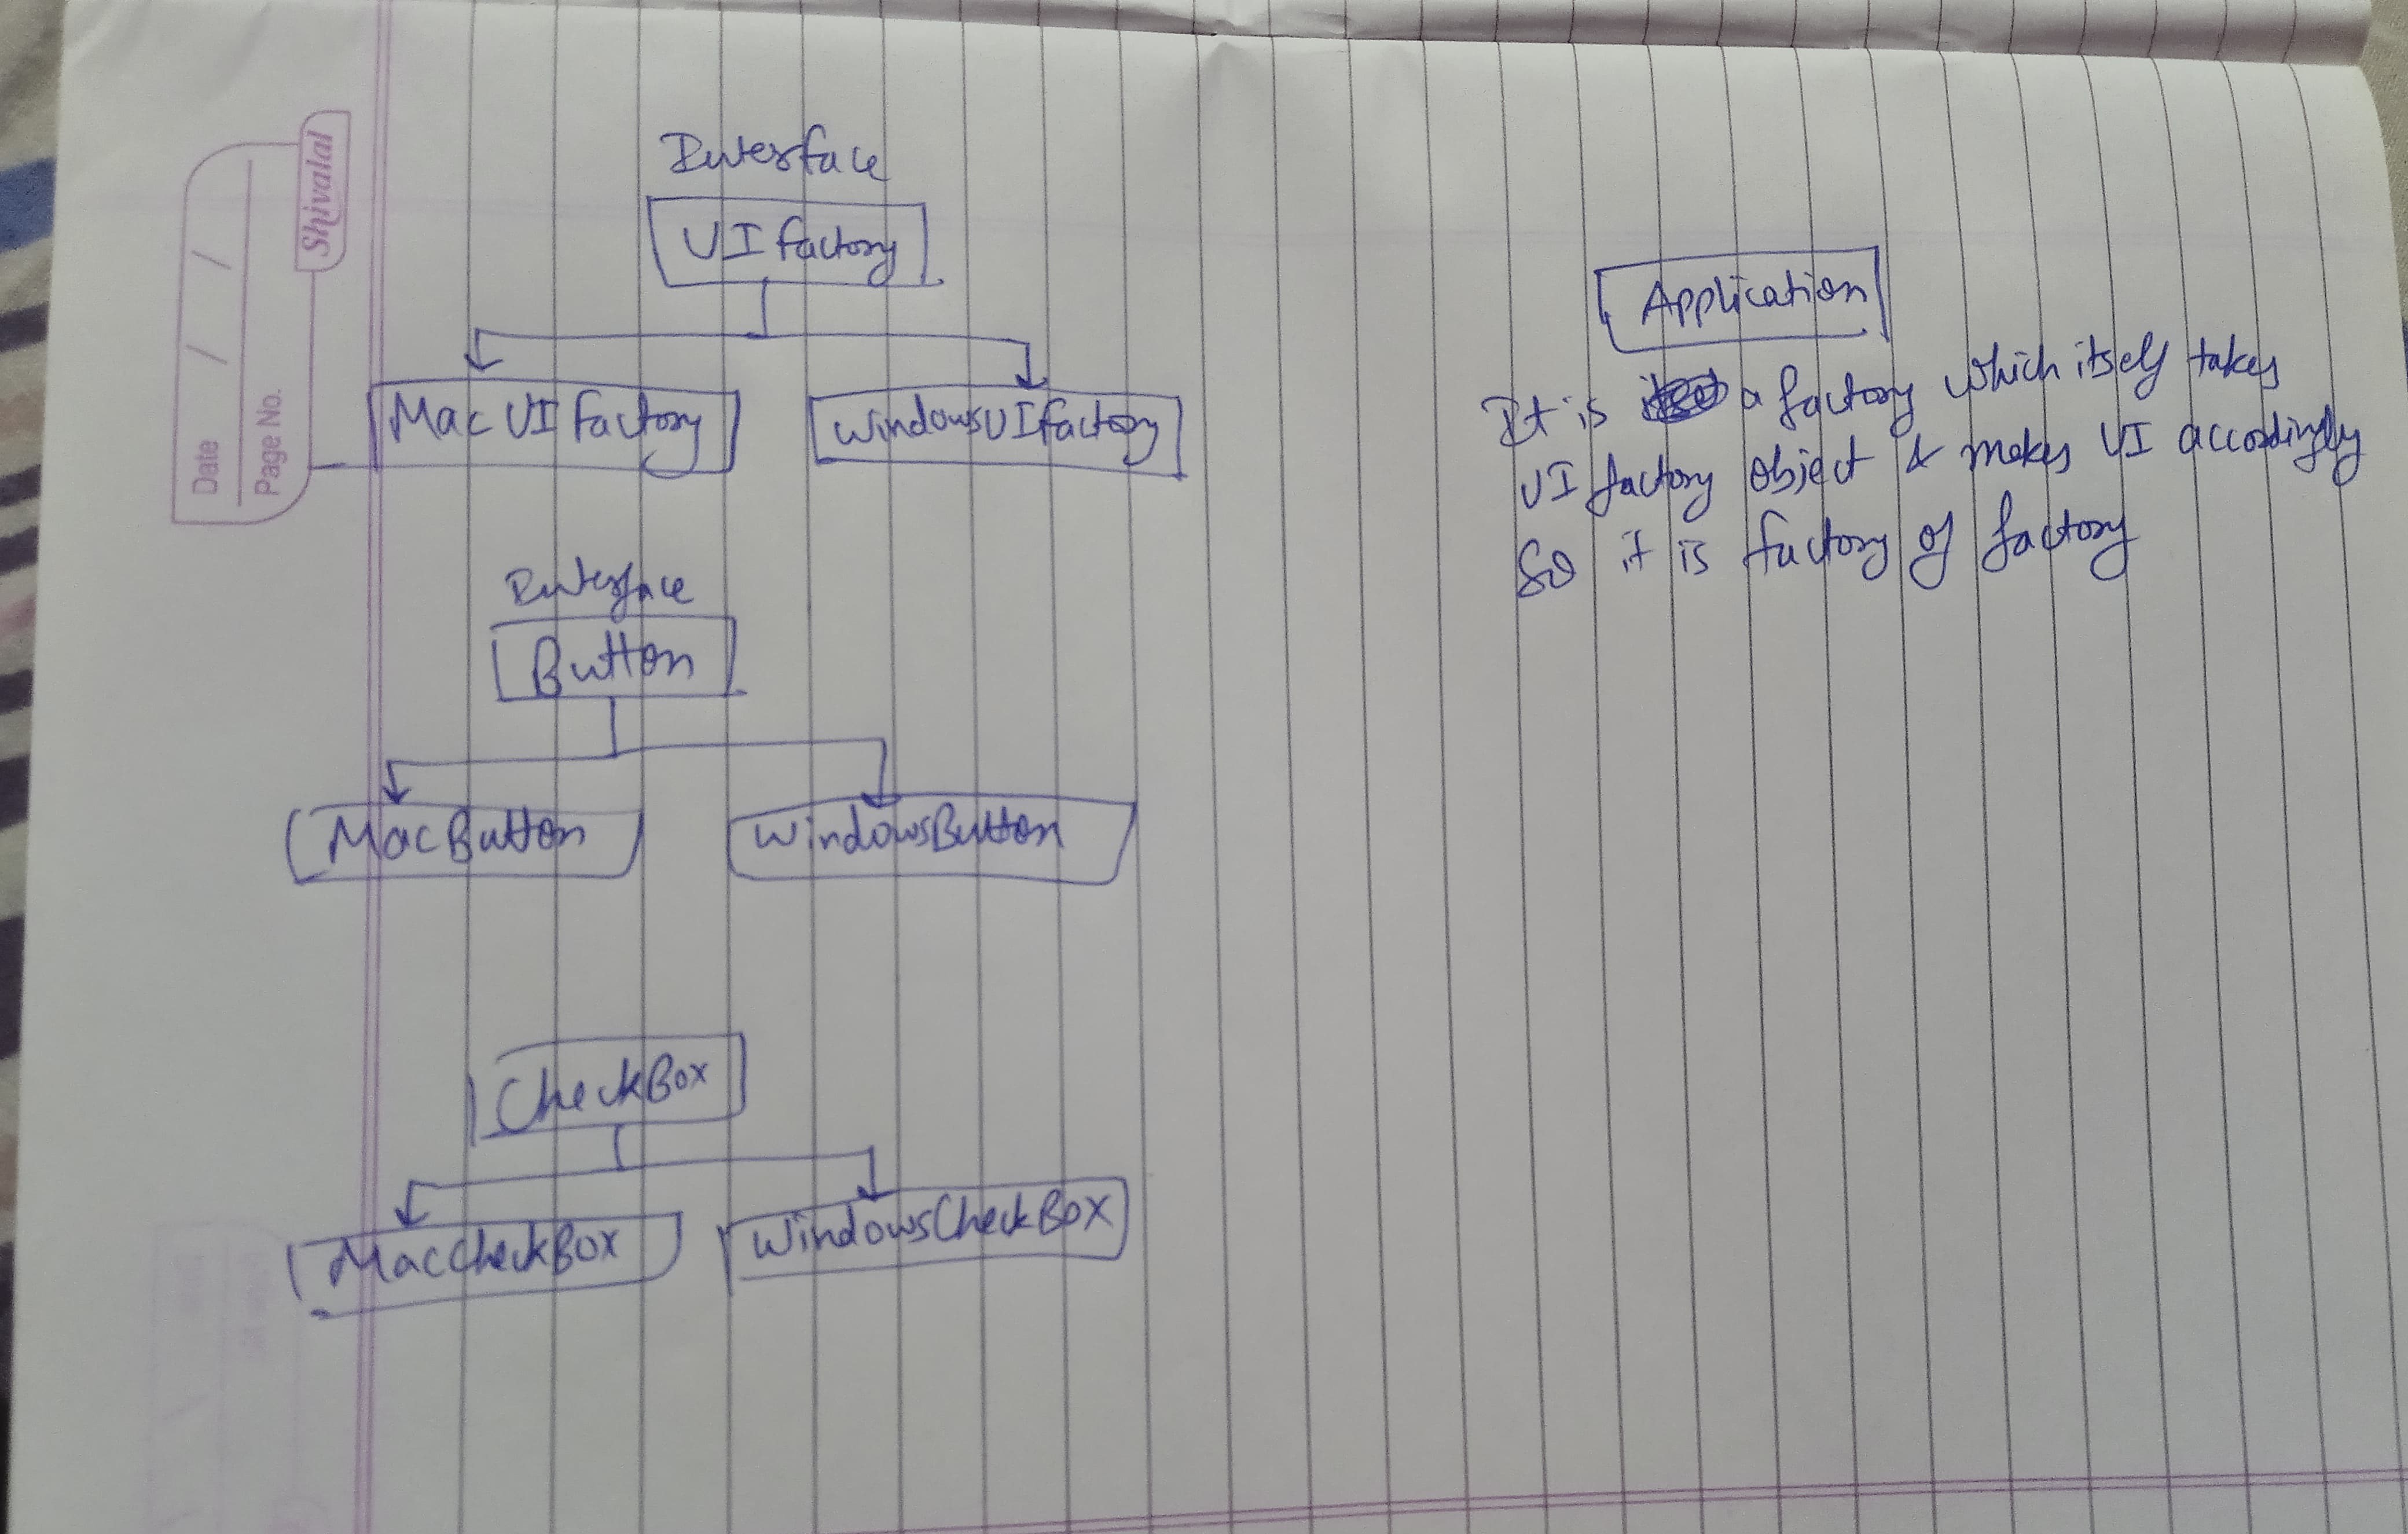 Shivalal
Date / /
Page No.
Interface
UI factory
Mac UI factory
WindowsUIfactory
Interface
Button
MacButton
WindowsButton
CheckBox
MacCheckBox
WindowsCheckBox
Application
It is a factory which itself takes
UI factory object & makes UI accordingly
So it is factory of factory